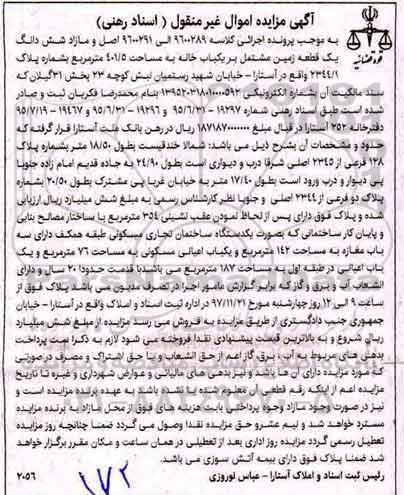 آگهی مزایده اموال غیر منقول ( اسناد رهنی )
قوه قضائیه
به موجب پرونده اجرائی کلاسه ۹۶۰۰۲۸۹ الی ۹۶۰۰۲۹۱ اصل و مازاد شش دانگ
یک قطعه زمین مشتمل بر یکباب خانه به مساحت ۴۰۱/۵ مترمربع بشماره پلاک
۲۳۴۴/۱ واقع در آستارا – خیابان شهید رستمیان نبش کوچه ۲۳ بخش ۳۱ گیلان که
سند مالکیت آن بشماره الکترونیکی ۱۳۹۵۲۰۳۱۸۰۱۰۰۰۰۵۹۲ بنام محمدرضا فکریان ثبت و صادر
شده است طبق اسناد رهنی شماره ۱۹۲۹۷ – ۹۵/۶/۳۱ و ۱۹۲۹۶ – ۹۵/۶/۳۱ و ۱۹۴۶۷ – ۹۵/۷/۱۹
دفترخانه ۲۵۲ آستارا در قبال مبلغ ۱۸۷۱۸۷۰۰۰۰۰۰۰ در رهن بانک ملت آستارا قرار گرفته که
حدود و مشخصات آن بشرح ذیل می باشد: شمالا خندقیست بطول ۱۸/۵۰ متر بشماره پلاک
۱۳۸ فرعی از ۲۳۴۵ اصلی شرقا درب و دیواری است بطول ۲۴/۹۰ به جاده قدیم امام زاده جنوبا
پی دیوار و درب ورود است بطول ۱۷/۴۰ متر به خیابان غربا پی مشترک بطول ۲۰/۵۰ بشماره
پلاک دو فرعی از ۲۳۴۴ اصلی و جنوبا نظر کارشناس رسمی به مبلغ شش میلیارد ریال ارزیابی
شده و پلاک فوق دارای پس از لحاظ نمودن عقب نشینی ۳۵۴ مترمربع با ساختار مصالح بنایی
و پایان کار ساختمانی که بصورت یکدستگاه ساختمان تجاری مسکونی طبقه همکف دارای سه
باب مغازه به مساحت ۱۴۲ مترمربع و یکباب اعیانی مسکونی به مساحت ۷۶ مترمربع و یک
باب اعیانی در طبقه اول به مساحت ۱۸۷ مترمربع می باشد با قدمت حدودا ۲۰ سال و دارای
انشعاب آب و برق و گاز که برابر گزارش مامور اجرا در تصرف مدیون می باشد پلاک فوق از
ساعت ۹ الی ۱۲ روز چهارشنبه مورخ ۹۷/۱۱/۲۱ در اداره ثبت اسناد و املاک واقع در آستارا – خیابان
جمهوری جنب دادگستری از طریق مزایده به فروش می رسد مزایده از مبلغ شش میلیارد
ریال شروع و به بالاترین قیمت پیشنهادی نقدا فروخته می شود لازم به ذکر است پرداخت
بدهی های مربوط به آب ، برق، گاز اعم از حق انشعاب و یا حق اشتراک و مصرف در صورتی
که مورد مزایده دارای آن ها باشد و نیز بدهی های مالیاتی و عوارض شهرداری و غیره تا تاریخ
مزایده اعم از اینکه رقم قطعی آن معلوم شده یا نشده باشد به عهده برنده مزایده است و
نیز در صورت وجود مازاد وجوه پرداختی بابت هزینه های فوق از محل مازاد به برنده مزایده
مسترد خواهد شد و نیم عشر و حق مزایده نقدا وصول می گردد ضمنا چنانچه روز مزایده
تعطیل رسمی گردد مزایده روز اداری بعد از تعطیلی در همان ساعت و مکان مقرر برگزار خواهد
شد ضمنا پلاک فوق دارای بیمه آتش سوزی می باشد.
رئیس ثبت اسناد و املاک آستارا – عباس نوروزی
۲۰۵۶
۱۷۲